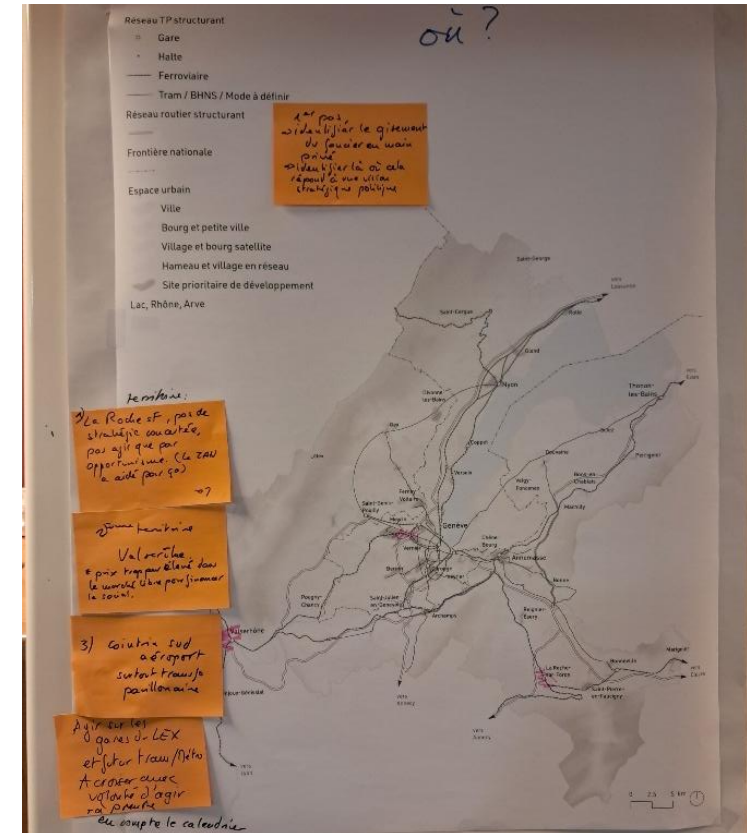 où ?
Réseau TP structurant
Gare
Halte
Ferroviaire
Tram / BHNS / Mode à définir
Réseau routier structurant
Frontière nationale
Espace urbain
Ville
Bourg et petite ville
Village et bourg satellite
Hameau et village en réseau
Site prioritaire de développement
Lac, Rhône, Arve
1er pas,
identifier le gisement
du foncier en main
privé
identifier là où cela
répond à une vision
stratégique politique
territoire:
1) La Roche sF, pas de
stratégie concertée,
pas agir que par
opportunisme. (le ZAN
a aidé pour ça)
2ème territoire
Valserhône
prix trop peu élevé dans
le marché libre pour financer
le social.
3) Cointrin sud
aéroport
surtout transfo
pavillonnaire
Agir sur les
gares du LEX
et futur tram/Métro
A croiser avec
volonté d'agir
prendre
en compte le calendrier
Saint-George
vers
Lausanne
Saint-Cergue
Rolle
Gland
Nyon
Divonne
les-Bains
Thonon-
les-Bains
vers
Evian
Gex
Coppet
Douvaine
Perrignier
Bons-en-
Chablais
Versoix
Veigy-
Foncenex
Machilly
Ferney
Voltaire
Saint-Genis
Pouilly
Meyrin
Genève
Vernier
Chêne
Bourg
Annemasse
Bernex
Carouge
Pougny-
Chancy
Saint-Julien
en-Genevois
Archamps
Reignier-
Esery
Valserhône
La Roche
sur-Foron
Bonneville
Marignier
vers
Cluses
Saint-Pierre
en-Faucigny
vers
Annecy
vers
Annecy
vers
Lyon
0 2,5 5 km